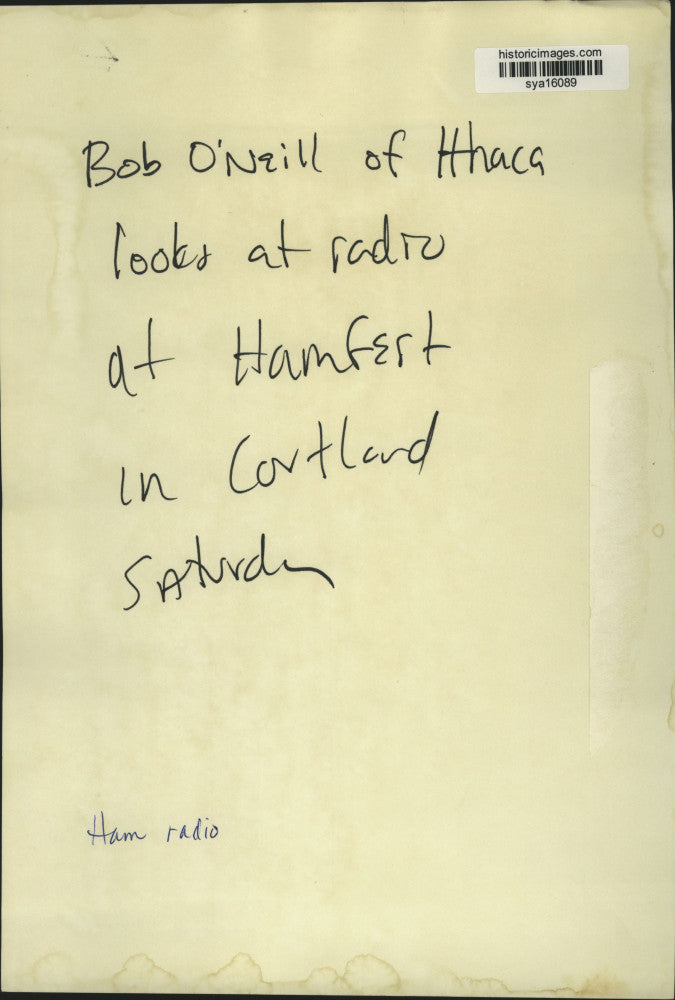 historicimages.com
sya16089
Bob O'Neill of Ithaca
looks at radio
at Hamfest
in Cortland
Saturday
Ham radio